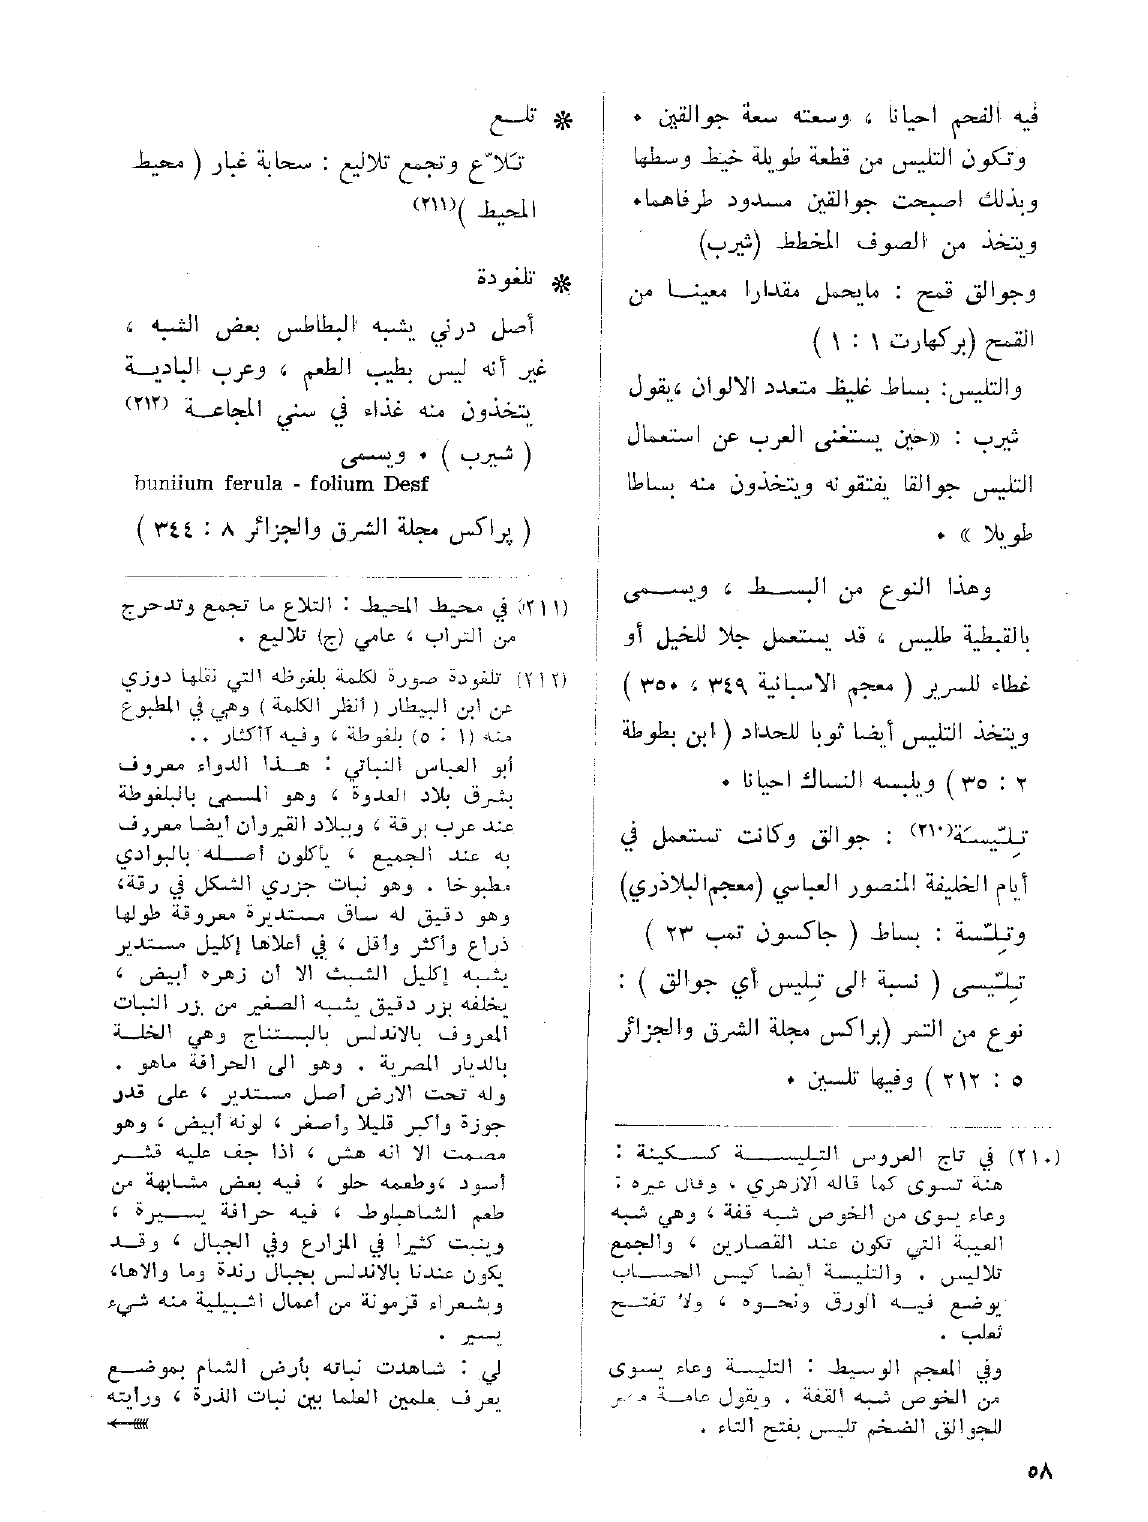 فيه الفحم أحيانا ، وسعته سعة جوالقين .
وتكون التليس من قطعة طويلة خيط وسطها
وبذلك اصبحت جوالقين مسدود طرفاهما.
ويتخذ من الصوف المخطط (شيرب)
وجوالق قمح : مايحمل مقدارا معينا من
القمح (بركهارت ١ : ١ )
والتليس: بساط غليظ متعدد الالوان ،يقول
شيرب : «حين يستغنى العرب عن استعمال
التليس جوالقا يفتقونه ويتخذون منه بساطا
طويلا » .
وهذا النوع من البسط ، ويسمى
بالقبطية طليس ، قد يستعمل جلا للخيل أو
غطاء للسرير ( معجم الاسبانية ٣٤٩ ، ٣٥٠ )
ويتخذ التليس أيضا ثوبا للحداد ( ابن بطوطة
٢ : ٣٥ ) ويلبسه النساك احيانا .
تِلِّيسَة(٢١٠) : جوالق وكانت تستعمل في
أيام الخليفة المنصور العباسي (معجم البلاذري)
وتِلِّسَة : بساط ( جاكسون تمب ٢٣ )
تِلِّيسى ( نسبة الى تِلِّيس أي جوالق ) :
نوع من التمر (براكس مجلة الشرق والجزائر
٥ : ٢١٢ ) وفيها تلسين .
(٢١٠) في تاج العروس التليسة كسكينة :
هنة تسوى كما قاله الازهري ، وقال غيره :
وعاء يسوى من الخوص شبه قفة ، وهي شبه
العيبة التي تكون عند القصارين ، والجمع
تلاليس . والتليسة أيضا كيس الحساب
يوضع فيه الورق ونحوه ، ولا تفتح
ثعلب .
وفي المعجم الوسيط : التليسة وعاء يسوى
من الخوص شبه القفة . ويقول عامة مصر
للجوالق الضخم تليس بفتح التاء .
* تلع
تَلاّع وتجمع تلاليع : سحابة غبار ( محيط
المحيط )(٢١١)
* تلغودة
أصل درني يشبه البطاطس بعض الشبه ،
غير أنه ليس بطيب الطعم ، وعرب البادية
يتخذون منه غذاء في سني المجاعة (٢١٢)
( شيرب ) . ويسمى
buniium ferula - folium Desf
( پراكس مجلة الشرق والجزائر ٨ : ٣٤٤ )
(٢١١) في محيط المحيط : التلاع ما تجمع وتدحرج
من التراب ، عامي (ج) تلاليع .
(٢١٢) تلغودة صورة لكلمة بلغوظه التي نقلها دوزي
عن ابن البيطار ( أنظر الكلمة ) وهي في المطبوع
منه (١ : ٥) بلغوطة ، وفيه آآكثار ..
أبو العباس النباتي : هذا الدواء معروف
بشرق بلاد العدوة ، وهو المسمى بالبلغوطة
عند عرب برقة ، وببلاد القيروان أيضا معروف
به عند الجميع ، يأكلون أصله بالبوادي
مطبوخا . وهو نبات جزري الشكل في رقة،
وهو دقيق له ساق مستديرة معروقة طولها
ذراع وأكثر وأقل ، في أعلاها إكليل مستدير
يشبه إكليل الشبث الا أن زهره أبيض ،
يخلفه بزر دقيق يشبه الصغير من بزر النبات
المعروف بالاندلس بالبستناج وهي الخلة
بالديار المصرية . وهو الى الحرافة ماهو .
وله تحت الارض أصل مستدير ، على قدر
جوزة وأكبر قليلا وأصغر ، لونه أبيض ، وهو
مصمت الا انه هش ، اذا جف عليه قشر
أسود ،وطعمه حلو ، فيه بعض مشابهة من
طعم الشاهبلوط ، فيه حرافة يسيرة ،
وينبت كثيرا في المزارع وفي الجبال ، وقد
يكون عندنا بالاندلس بجبال رندة وما والاها،
وبشعراء قرمونة من أعمال اشبيلية منه شيء
يسير .
لي : شاهدت نباته بأرض الشام بموضع
يعرف بعلمين العلما بين نبات الذرة ، ورأيته
٥٨